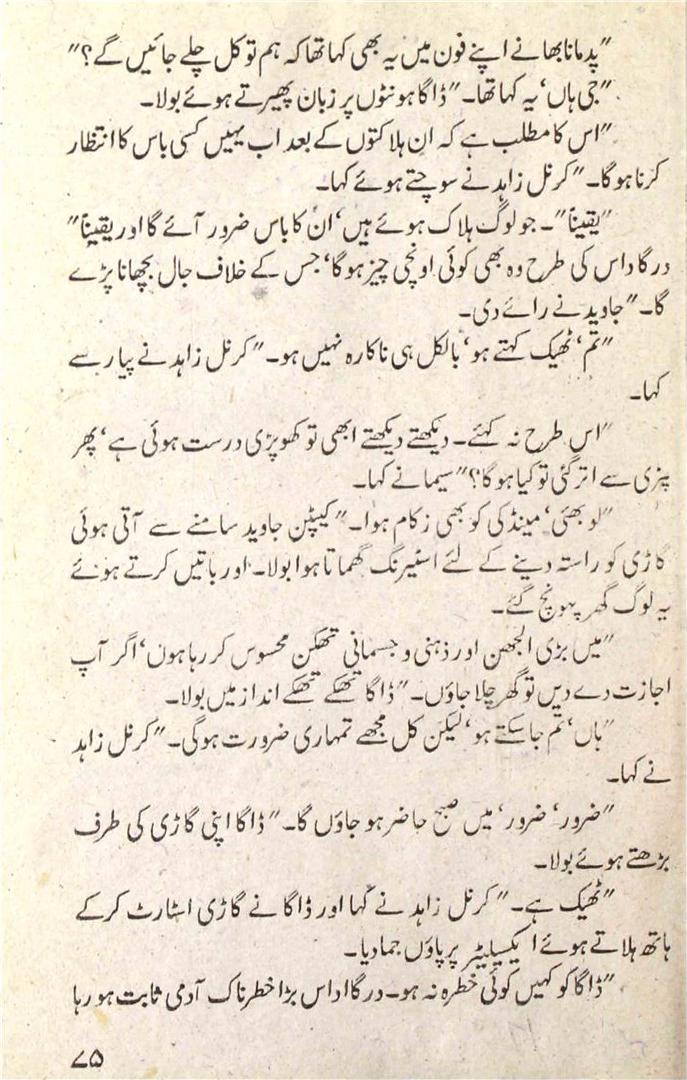 "پدمانابھا نے اپنے فون میں یہ بھی کہا تھا کہ ہم تو کل چلے جائیں گے؟"
"جی ہاں‘ یہ کہا تھا۔" ڈاگا ہونٹوں پر زبان پھیرتے ہوئے بولا۔
"اس کا مطلب ہے کہ ان ہلاکتوں کے بعد اب یہیں کسی باس کا انتظار
کرنا ہوگا۔" کرنل زاہد نے سوچتے ہوئے کہا۔
"یقیناً"۔ جو لوگ ہلاک ہوئے ہیں‘ ان کا باس ضرور آئے گا اور یقیناً"
درگا داس کی طرح وہ بھی کوئی اونچی چیز ہوگا‘ جس کے خلاف جال بچھانا پڑے
گا۔" جاوید نے رائے دی۔
"تم‘ ٹھیک کہتے ہو‘ بالکل ہی ناکارہ نہیں ہو۔" کرنل زاہد نے پیار سے
کہا۔
"اس طرح نہ کہئے۔ دیکھتے دیکھتے ابھی تو کھوپڑی درست ہوئی ہے‘ پھر
پٹری سے اتر گئی تو کیا ہوگا؟" سیما نے کہا۔
"لو بھئی‘ مینڈکی کو بھی زکام ہوا۔" کیپٹن جاوید سامنے سے آتی ہوئی
گاڑی کو راستہ دینے کے لئے اسٹیرنگ گھماتا ہوا بولا۔ اور باتیں کرتے ہوئے
یہ لوگ گھر پہونچ گئے۔
"میں بڑی الجھن اور ذہنی و جسمانی تھکن محسوس کر رہا ہوں‘ اگر آپ
اجازت دے دیں تو گھر چلا جاؤں۔" ڈاگا تھکے تھکے انداز میں بولا۔
"ہاں‘ تم جاسکتے ہو‘ لیکن کل مجھے تمہاری ضرورت ہوگی۔" کرنل زاہد
نے کہا۔
"ضرور‘ ضرور‘ میں صبح حاضر ہو جاؤں گا۔" ڈاگا اپنی گاڑی کی طرف
بڑھتے ہوئے بولا۔
"ٹھیک ہے۔" کرنل زاہد نے کہا اور ڈاگا نے گاڑی اسٹارٹ کرکے
ہاتھ ہلاتے ہوئے ایکسیلیٹر پر پاؤں جما دیا۔
"ڈاگا کو کہیں کوئی خطرہ نہ ہو۔ درگا داس بڑا خطرناک آدمی ثابت ہو رہا
۷۵